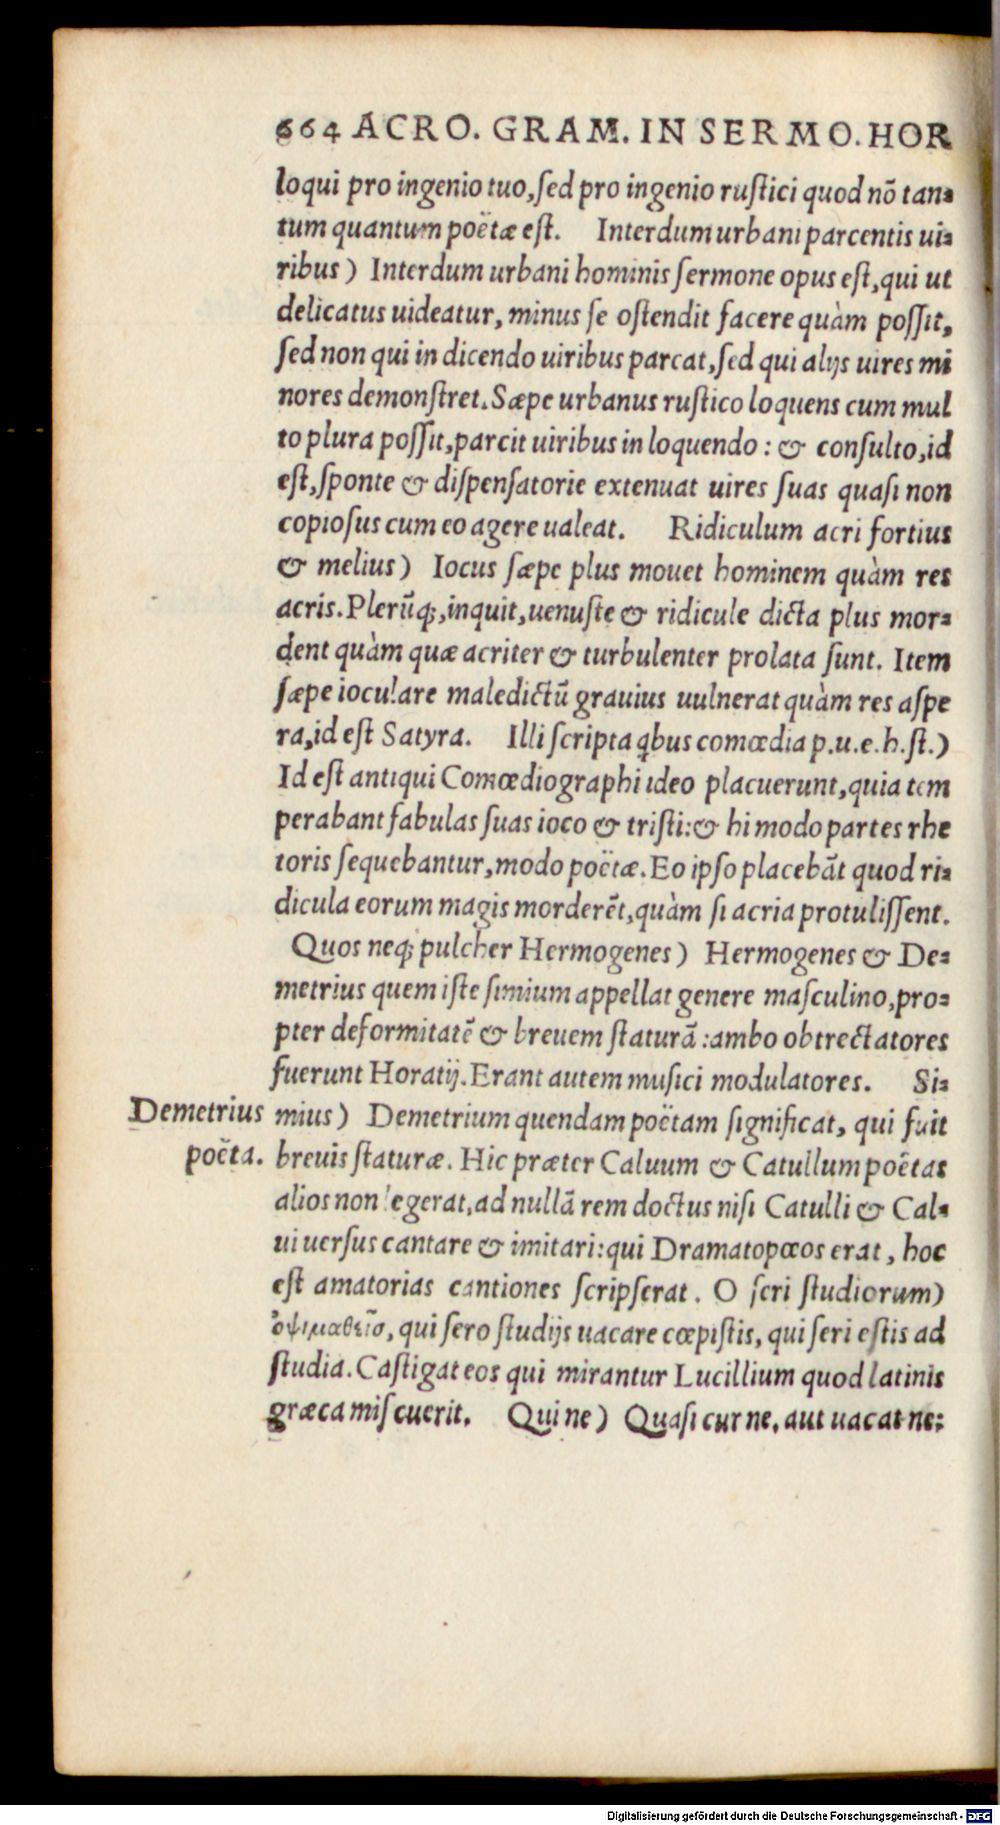 664 ACRO. GRAM. IN SERMO. HOR
loqui pro ingenio tuo, ſed pro ingenio ruſtici quod nō tan⸗
tum quantum poëtæ eſt. Interdum urbani parcentis ui⸗
ribus) Interdum urbani hominis ſermone opus eſt, qui ut
delicatus uideatur, minus ſe oſtendit facere quàm poſſit,
ſed non qui in dicendo uiribus parcat, ſed qui alijs uires mi
nores demonſtret. Sæpe urbanus ruſtico loquens cum mul
to plura poſſit, parcit uiribus in loquendo : & conſulto, id
eſt, ſponte & diſpenſatorie extenuat uires ſuas quaſi non
copioſus cum eo agere ualeat. Ridiculum acri fortius
& melius) Iocus ſæpe plus mouet hominem quàm res
acris. Plerūq;, inquit, uenuſte & ridicule dicta plus mor⸗
dent quàm quæ acriter & turbulenter prolata ſunt. Item
ſæpe ioculare maledictū grauius uulnerat quàm res aſpe
ra, id eſt Satyra. Illi ſcripta qbus comœdia p.u.e.h.ſt.)
Id eſt antiqui Comœdiographi ideo placuerunt, quia tem
perabant fabulas ſuas ioco & triſti: & hi modo partes rhe
toris ſequebantur, modo poëtæ. Eo ipſo placebāt quod ri⸗
dicula eorum magis morderēt, quàm ſi acria protuliſſent.
Quos neq; pulcher Hermogenes) Hermogenes & De⸗
metrius quem iſte ſimium appellat genere maſculino, pro⸗
pter deformitatē & breuem ſtaturā : ambo obtrectatores
fuerunt Horatij. Erant autem muſici modulatores. Si⸗
Demetrius poëta.
mius) Demetrium quendam poëtam ſignificat, qui fuit
breuis ſtaturæ. Hic præter Caluum & Catullum poëtas
alios non legerat, ad nullā rem doctus niſi Catulli & Cal⸗
ui uerſus cantare & imitari: qui Dramatopœos erat, hoc
eſt amatorias cantiones ſcripſerat. O ſeri ſtudiorum)
ὀψιμαθεῖσ, qui ſero ſtudijs uacare cœpiſtis, qui ſeri eſtis ad
ſtudia. Caſtigat eos qui mirantur Lucillium quod latinis
græca miſcuerit. Qui ne) Quaſi cur ne, aut uacat ne:
Digitalisierung gefördert durch die Deutsche Forschungsgemeinschaft - DFG